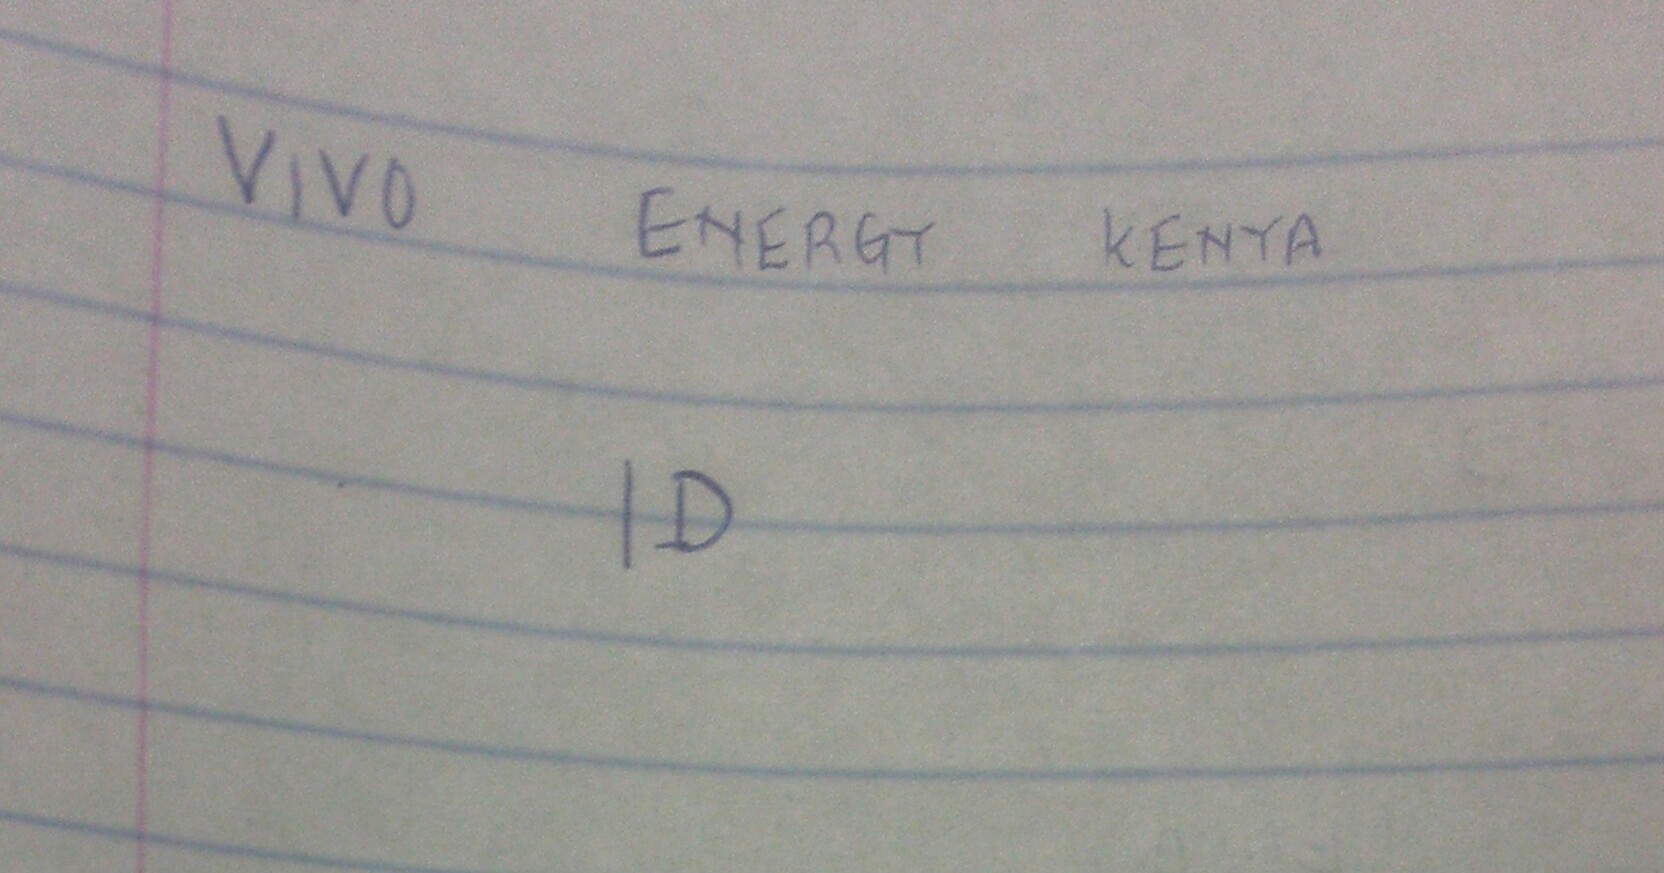 VIVO ENERGY KENYA
ID